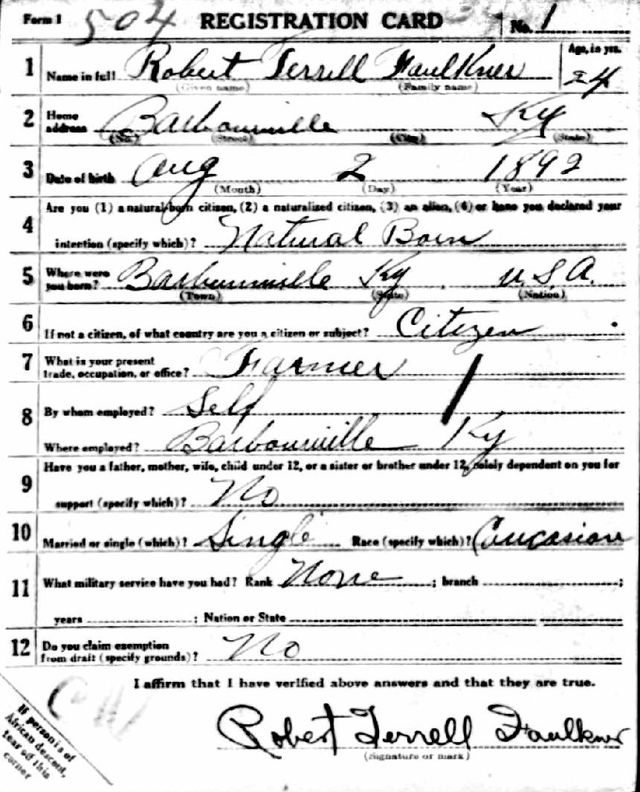 Form 1 504 REGISTRATION CARD No. 1
1 Name in full Robert Terrell Faulkner Age, in yrs. 24
(Given name) (Family name)
2 Home address Barbourville Ky
(No.) (Street) (City) (State)
3 Date of birth Aug 2 1892
(Month) (Day) (Year)
4 Are you (1) a natural-born citizen, (2) a naturalized citizen, (3) an alien, (4) or have you declared your
intention (specify which)? Natural Born
5 Where were you born? Barbourville Ky. U.S.A.
(Town) (State) (Nation)
6 If not a citizen, of what country are you a citizen or subject? Citizen
7 What is your present trade, occupation, or office? Farmer
8 By whom employed? Self
Where employed? Barbourville Ky
9 Have you a father, mother, wife, child under 12, or a sister or brother under 12, solely dependent on you for
support (specify which)? No
10 Married or single (which)? Single Race (specify which)? Caucasian
11 What military service have you had? Rank None ; branch ;
years ; Nation or State
12 Do you claim exemption from draft (specify grounds)? No
I affirm that I have verified above answers and that they are true.
Robert Terrell Faulkner
(Signature or mark)
If person is of
African descent,
tear off this
corner